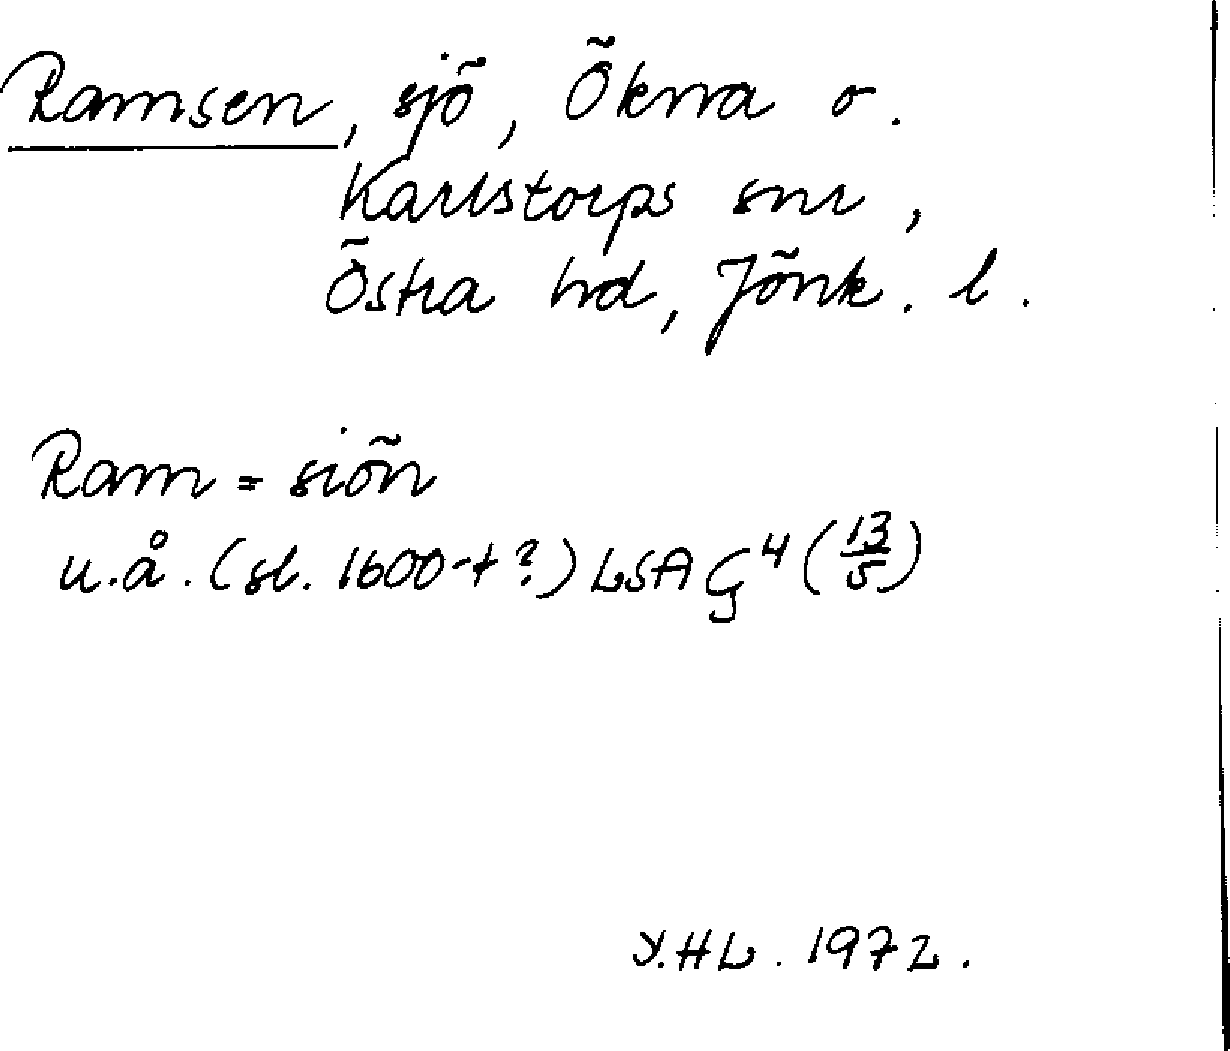 Ramsen, sjö, Ökna o.
Karlstorps snr,
Östra hd, Jönk. l.
Ram=siön
u.å. (sl. 1600-t?) LSA G4 (13/5)
Y.HL. 1972.